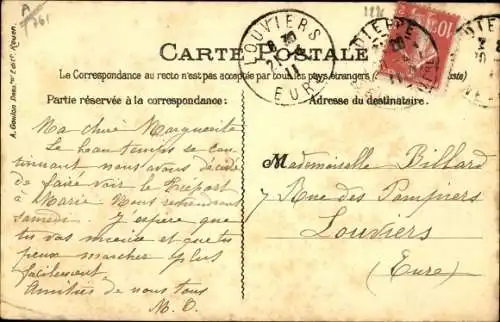 A
761
LOUVIERS
EURE
DIEPPE
10
CARTE POSTALE
Le Correspondance au recto n'est pas acceptée par tous les pays étrangers
Partie réservée à la correspondance:
Adresse du destinataire.
Ma chère Marguerite
Le beau temps se con-
tinuant nous avons décidé
de faire voir le Tréport
à Marie Nous reviendrons
samedi. J'espère que
tu vas mieux et que tu
peux marcher plus
facilement.
Amitiés de nous tous
M. O.
Mademoiselle Billard
7 Rue des Pompiers
Louviers
(Eure)